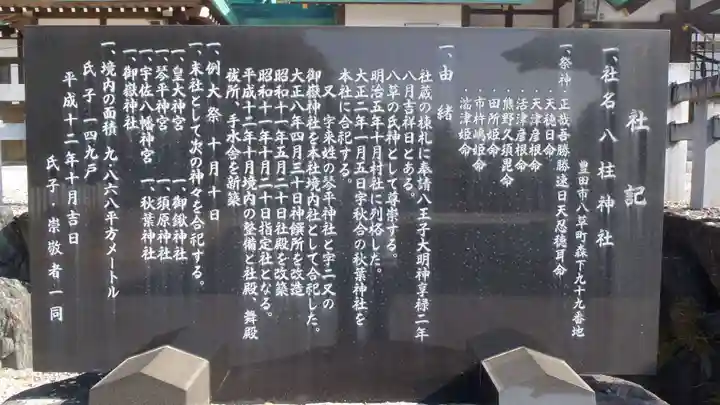 社記
一、社名 八柱神社
豊田市八草町森下九十九番地
一、祭神・正哉吾勝勝速日天忍穂耳命
・天穂日命
・天津彦根命
・活津彦根命
・熊野久須毘命
・田所姫命
・市杵嶋姫命
・湍津姫命
一、由緒
社蔵の棟札に奉請八王子大明神享禄二年
八月吉祥日とある。
八草の氏神として尊崇する。
明治五年十月村社に列格した。
大正二年一月五日字秋合の秋葉神社を
本社に合祀する。
又、字来姓の琴平神社と字二又の
御嶽神社を本社境内社として合祀した。
大正八年四月三十日神饌所を改造
昭和十一年五月二十日社殿を改築
昭和十一年十月二十日指定社となる。
平成十二年十月境内の整備と社殿、舞殿
祓所、手水舎を新築
一、例大祭 十月十日
一、末社として次の神々を合祀する。
一、皇大神宮 一、御鍬神社
一、琴平神宮 一、須原神社
一、宇佐八幡神宮 一、秋葉神社
一、御嶽神社
一、境内の面積 九・八六八平方メートル
氏子 一四九戸
平成十二年十月吉日
氏子・崇敬者一同